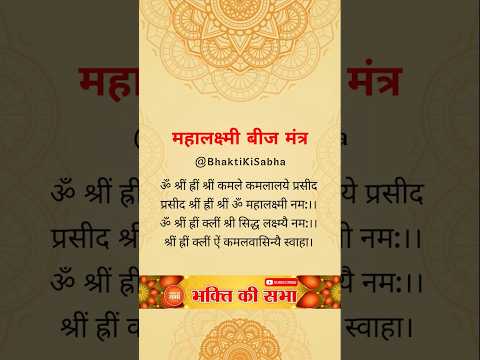 महालक्ष्मी बीज मंत्र
@BhaktiKiSabha
ॐ श्रीं ह्रीं श्रीं कमले कमलालये प्रसीद
प्रसीद श्रीं ह्रीं श्रीं ॐ महालक्ष्मी नमः।।
ॐ श्रीं ह्रीं क्लीं श्री सिद्ध लक्ष्म्यै नमः।।
श्रीं ह्रीं क्लीं ऐं कमलवासिन्यै स्वाहा।
भक्ति की सभा